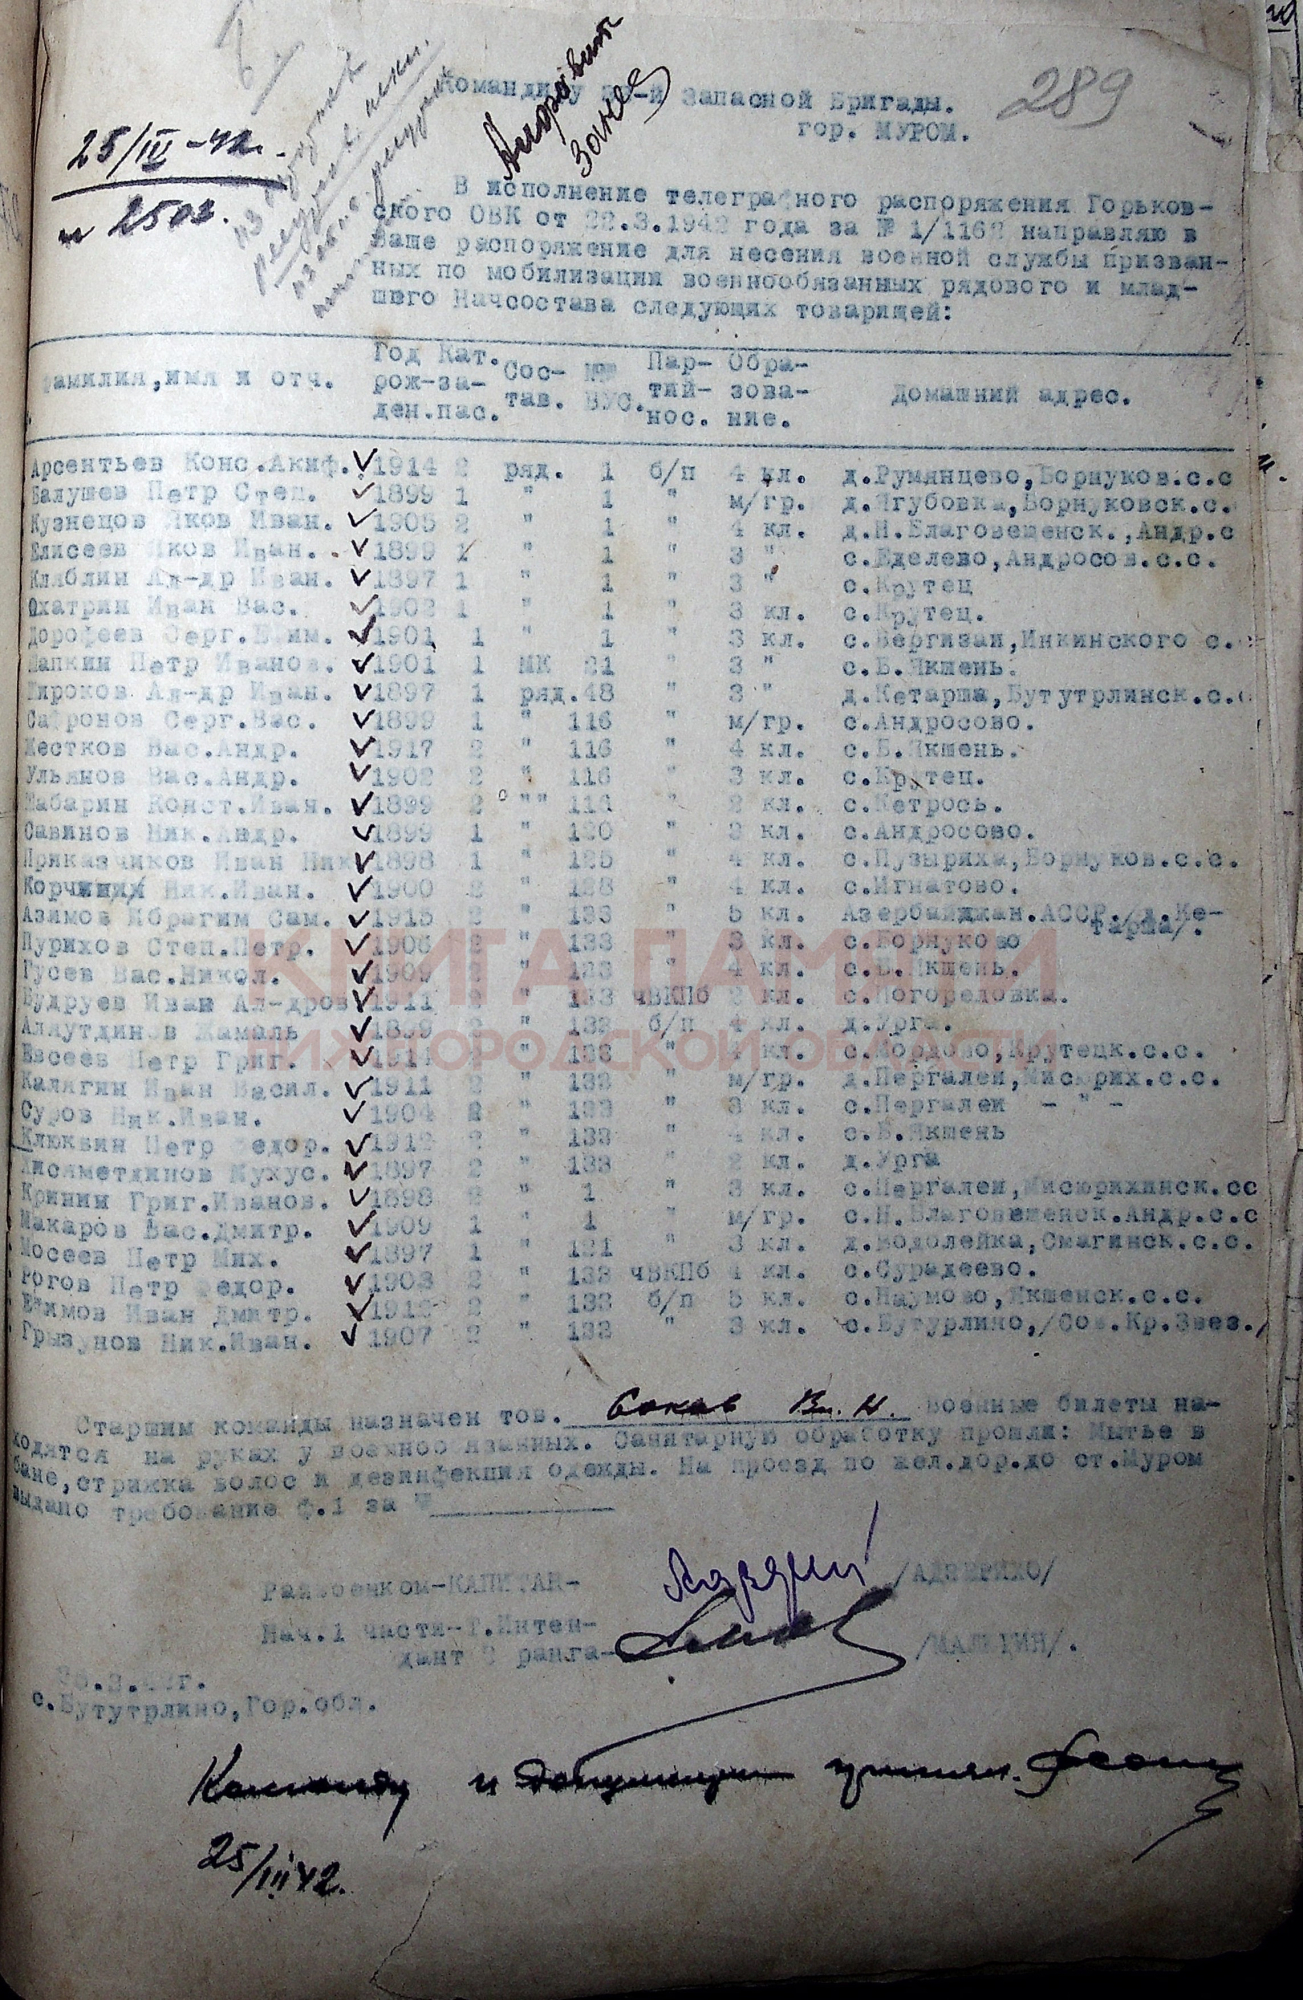 289
Командиру -й Запасной Бригады.
гор. МУРОМ.
25/III-42г.
В исполнение телеграфного распоряжения Горьков-
ского ОВК от 22.3.1942 года за № 1/1162 направляю в
Ваше распоряжение для несения военной службы призван-
ных по мобилизации военнообязанных рядового и млад-
шего Начсостава следующих товарищей:
Фамилия,имя и отч. Год рож-ден. Кат. за-пас. Сос-тав. №№ ВУС. Пар-тий-нос. Обра-зова-ние. Домашний адрес.
Арсентьев Конс.Акиф. 1914 2 ряд. 1 б/п 4 кл. д.Румянцево,Борнуков.с.с
Балушев Петр Степ. 1899 1 " 1 " м/гр. д.Ягубовка,Борнуковск.с.
Кузнецов Яков Иван. 1905 2 " 1 " 4 кл. д.Н.Благовещенск.,Андр.с
Елисеев Яков Иван. 1899 1 " 1 " 3 " с.Еделево,Андросов.с.с.
Кляблин Ал-др Иван. 1897 1 " 1 " 3 " с.Крутец
Охатрин Иван Вас. 1902 1 " 1 " 3 кл. с.Крутец.
Дорофеев Серг.Ефим. 1901 1 " 1 " 3 кл. с.Вергизаи,Инкинского с.
Лапкин Петр Иванов. 1901 1 МК 21 " 3 " с.Б.Якшень.
Широков Ал-др Иван. 1897 1 ряд.48 " 3 " д.Кетарша,Бутутрлинск.с.с
Сафронов Серг.Вас. 1899 1 " 116 " м/гр. с.Андросово.
Жестков Вас.Андр. 1917 2 " 116 " 4 кл. с.Б.Якшень.
Ульянов Вас.Андр. 1902 2 " 116 " 3 кл. с.Крутец.
Шабарин Конст.Иван. 1899 2 "" 116 " 2 кл. с.Кетрось.
Савинов Ник.Андр. 1899 1 " 120 " 3 кл. с.Андросово.
Приказчиков Иван Ник 1898 1 " 125 " 4 кл. с.Пузыриха,Борнуков.с.с.
Ник.Иван. 1900 2 " 128 " 4 кл. с.Игнатово.
Азимов Ибрагим Сам. 1915 2 " 133 " 5 кл. Азербайджан.АССР./д.Ке-
тарша/.
Пурихов Степ.Петр. 1906 2 " 133 " 3 кл. с.Борнуково
Гусев Вас.Никол. 1909 2 " 133 " 4 кл. с.Б.Якшень.
Будруев Иван Ал-дров 1911 2 " 133 чВКПб 2 кл. с.Погореловка.
Аляутдинов Жамаль 1899 2 " 133 б/п 4 кл. д.Урга.
Евсеев Петр Григ. 1914 2 " 133 " 4 кл. с.Мордово,Крутецк.с.с.
Калягин Иван Васил. 1911 2 " 133 " м/гр. д.Пергалеи,Мисюрих.с.с.
Суров Ник.Иван. 1904 2 " 133 " 3 кл. с.Пергалеи - " -
Клюквин Петр Федор. 1912 2 " 133 " 4 кл. с.Б.Якшень
1897 2 " 133 " 2 кл. д.Урга
Григ.Иванов. 1898 2 " 1 " 3 кл. с.Пергалеи,Мисюрихинск.сс
Макаров Вас.Дмитр. 1909 1 " 1 " м/гр. с.Н.Благовещенск.Андр.с.с
Мосеев Петр Мих. 1897 1 " 121 " 3 кл. д.Водолейка,Смагинск.с.с.
Рогов Петр Федор. 1903 2 " 133 чВКПб 4 кл. с.Сурадеево.
Ефимов Иван Дмитр. 1912 2 " 133 б/п 5 кл. с.Наумово,Якшенск.с.с.
Грызунов Ник.Иван. 1907 2 " 133 " 3 кл. с.Бутурлино,/Сов.Кр.Звез./
КНИГА ПАМЯТИ
НИЖЕГОРОДСКОЙ ОБЛАСТИ
Старшим команды назначен тов. военные билеты на-
ходятся на руках у военнообязанных. Санитарную обработку прошли: Мытье в
бане,стрижка волос и дезинфекция одежды. На проезд по жел.дор.до ст.Муром
выдано требование ф.1 за №
Райвоенком-КАПИТАН-
Нач.1 части-Т.Интен-
дант 2 ранга-
с.Бутутрлино,Гор.обл.
Команду и документы принял.
25/III 42.